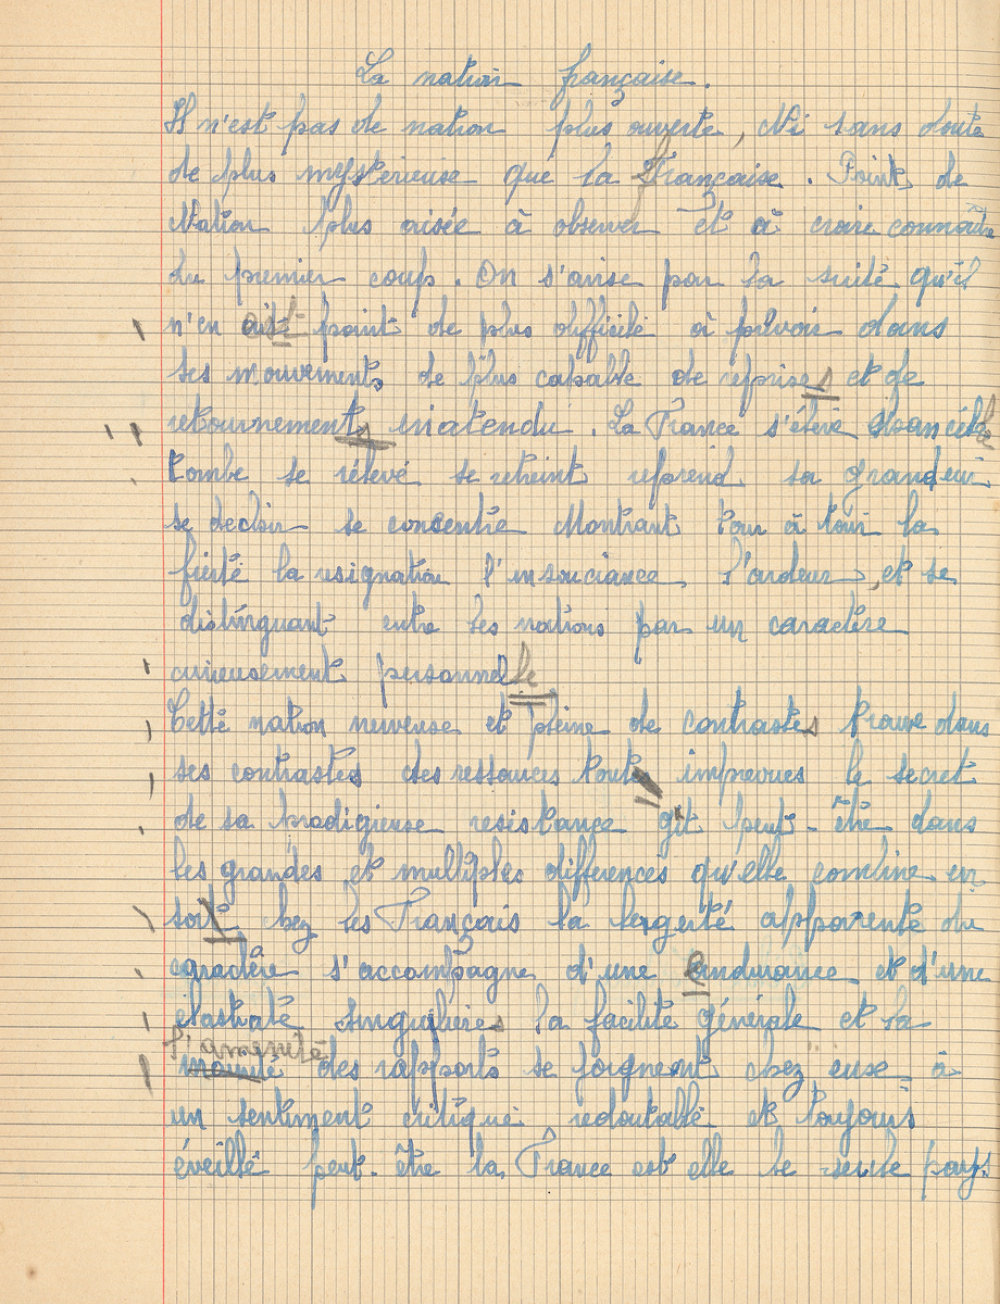 La nation française.
Il n'est pas de nation plus ouverte, Ni sans doute
de plus mystérieuse que la française. Point de
Nation plus aisée à observer et à croire connaître
du premier coup. On s'avise par la suite qu'il
n'en est point de plus difficile à prévoir dans
ses mouvements de plus capable de reprises et de
retournements inatendu. La France s'élève chancelle
tombe se relève se retreint reprend sa grandeur
se dechir se concentre Montrant tour à tour la
fierté la resignation l'insouciance l'ardeur, et se
distinguant entre les nations par un caractère
curieusement personnel
Cette nation nerveuse et pleine de contrastes trouve dans
ses contrastes des ressources toute imprevues le secret
de sa prodigieuse resistance git peut-être dans
les grandes et multiples differences qu'elle combine en
soi chez les Français la legerté apparente du
caractère s'accompagne d'une endurance et d'une
élasticité singulières la facilité générale et la
l'aménité
des rapports se joignent chez eux à
un sentiment critique redoutable et toujours
éveillé peut-être la France est elle le seule pays